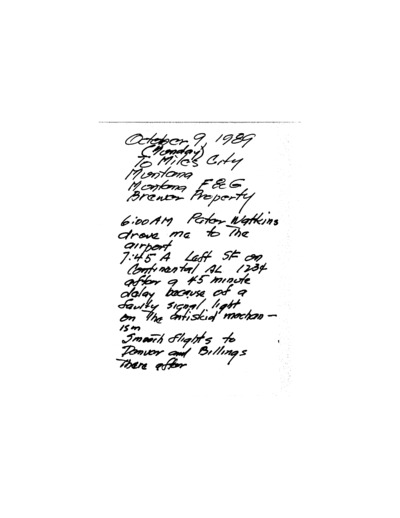 October 9, 1989
(Monday)
To Miles City
Montana
Montana F&G
Brewer Property
6:00 AM Peter Watkins
drove me to The
airport
7:45 A Left SF on
Continental AL 1234
after a 45 minute
delay because of a
faulty signal light
on The antiskid mechan-
ism
Smooth flights to
Denver and Billings
There after